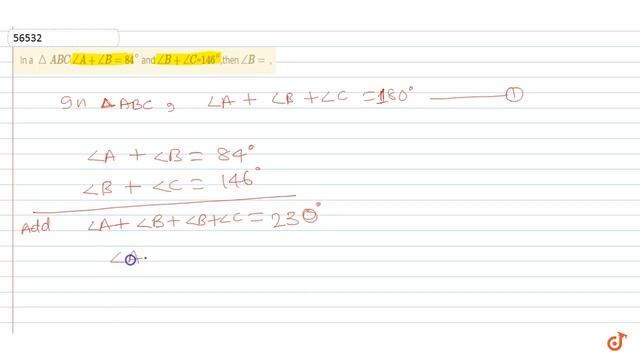 56532
In a △ ABC ∠A + ∠B = 84° and ∠B + ∠C=146°,then ∠B = .
In △ ABC , ∠A + ∠B + ∠C = 180° ①
∠A + ∠B = 84°
∠B + ∠C = 146°
Add ∠A + ∠B + ∠B + ∠C = 230°
∠A
doubtnut